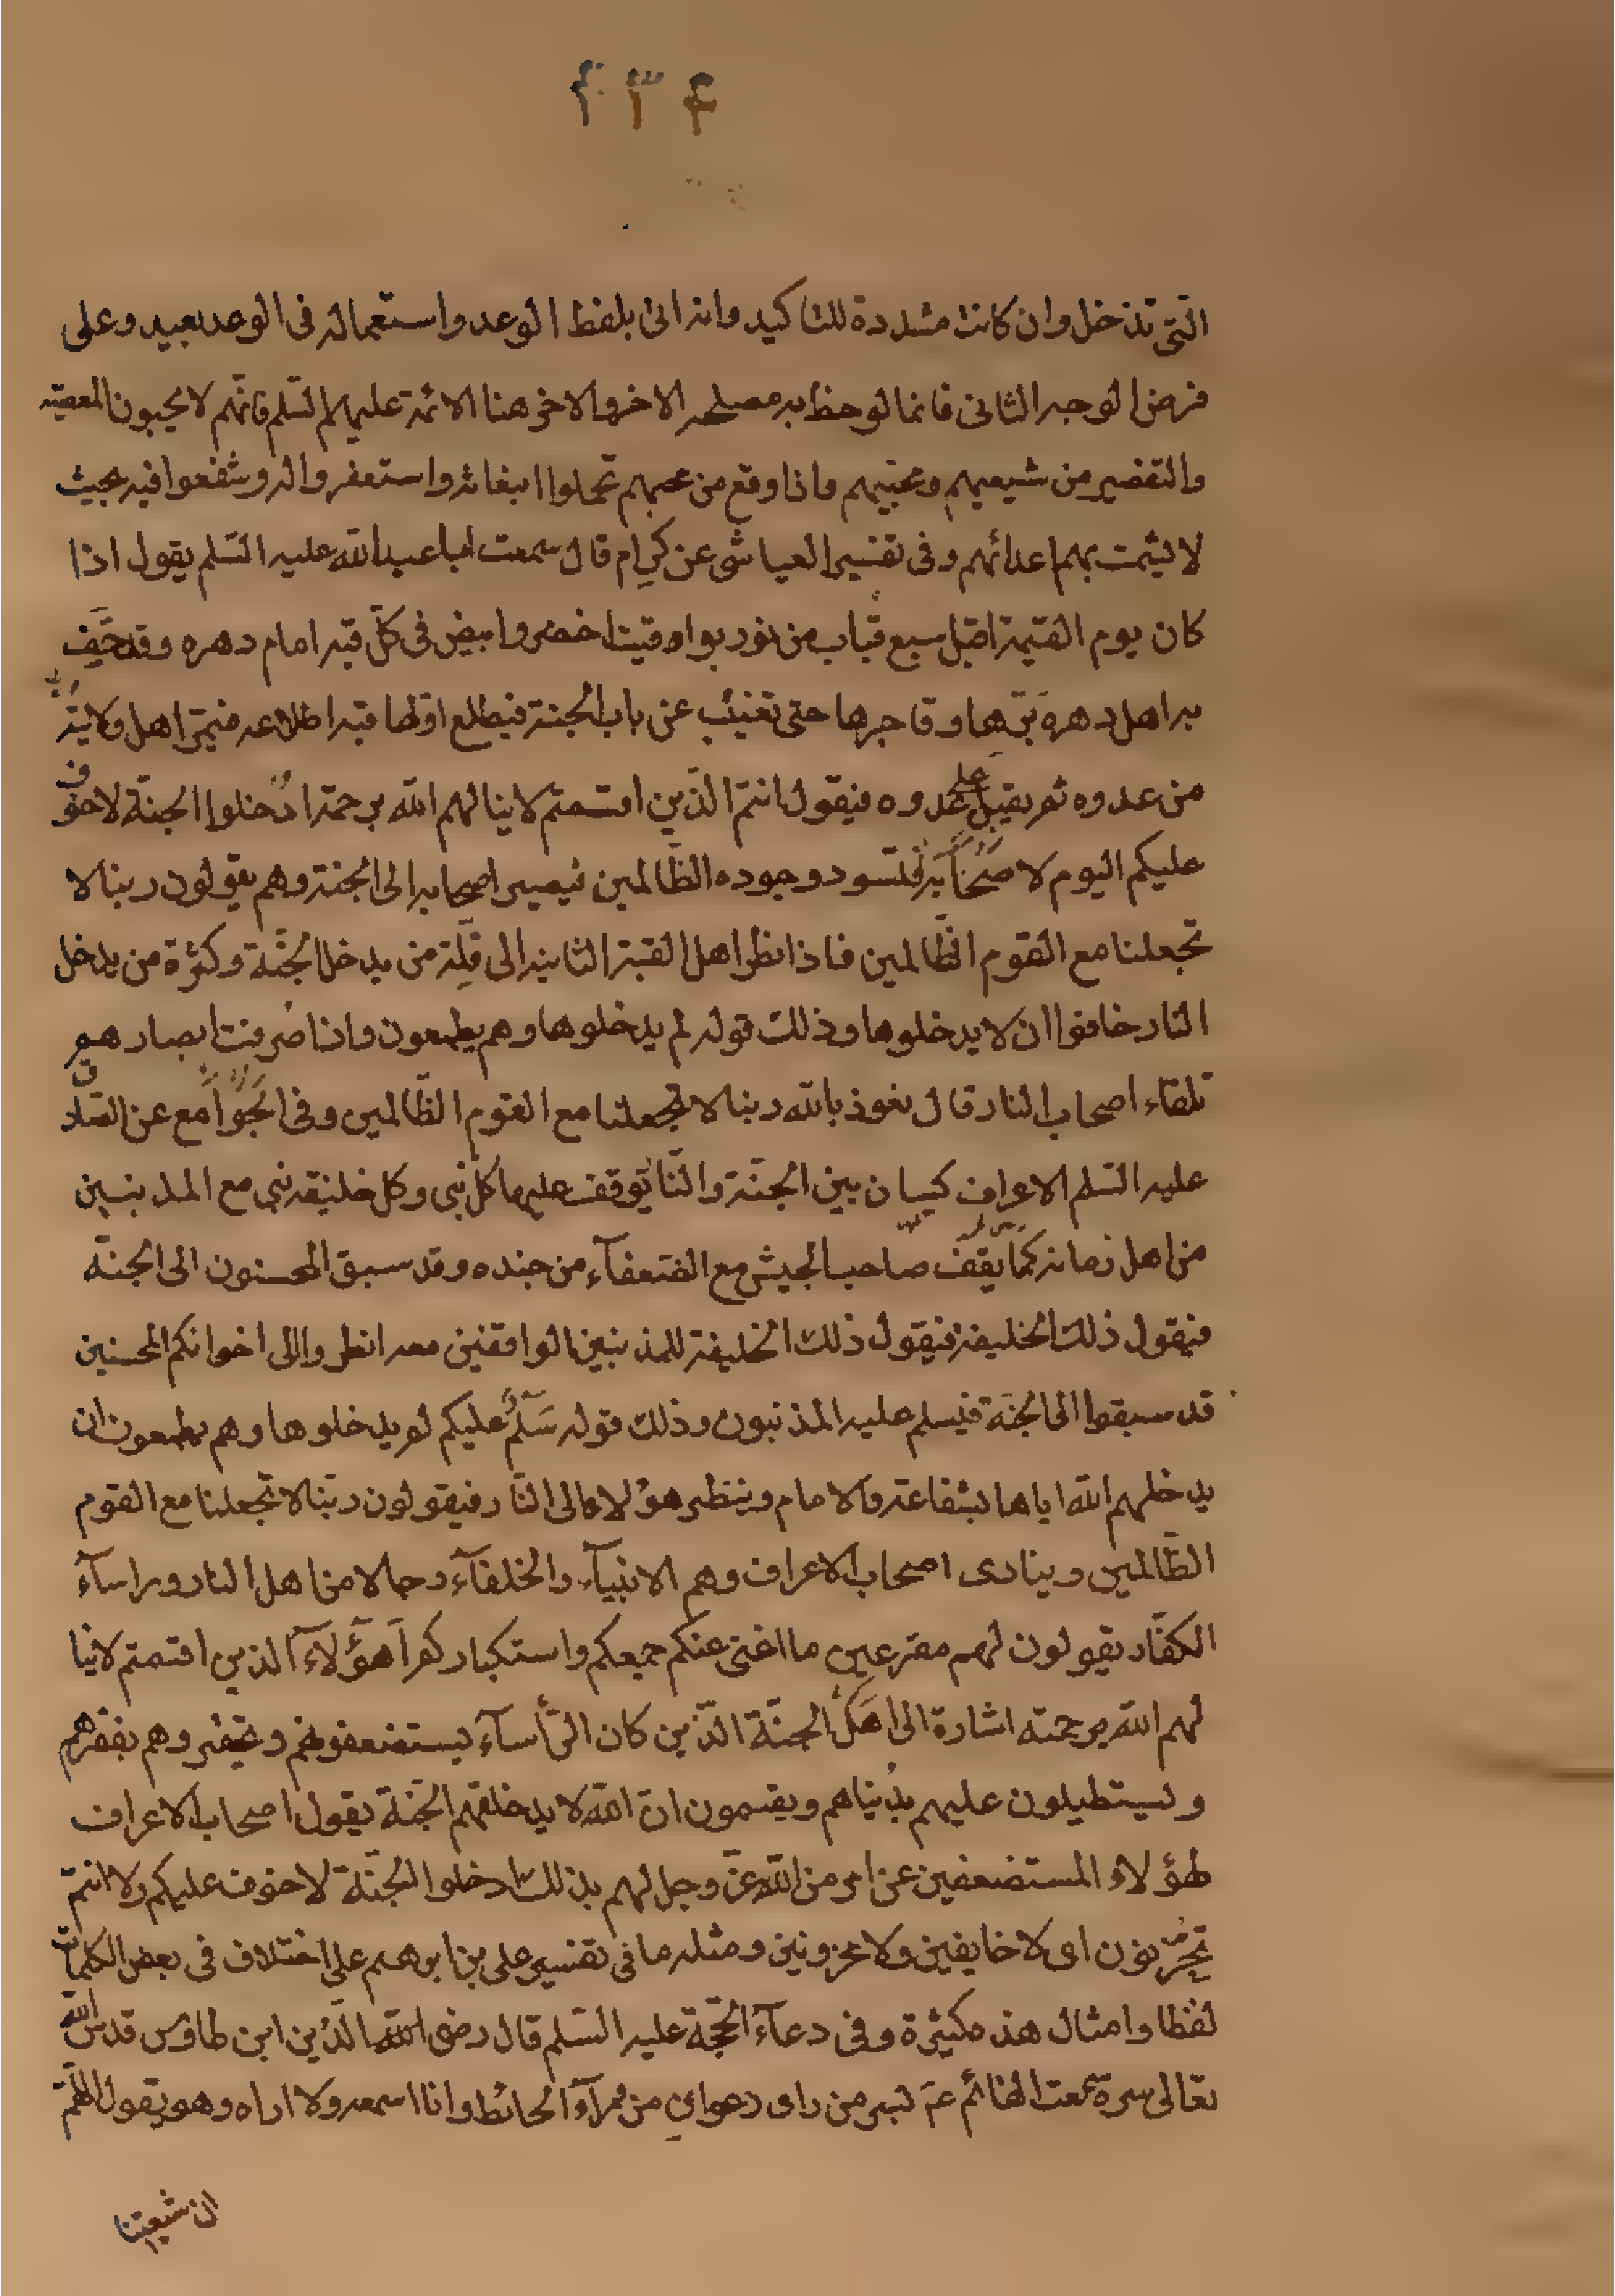 ۴۳۴
التی تدخل وان كانت مشددة للتاكيد وانه اتى بلفظ الوعد واستعماله فى الوعد بعيد وعلى
فرض الوجه الثانى فانما لوحظ به مصلحه الاخر والاخر هنا الائمة عليهم السّلم فانّهم لا يحبون المعصية
والتقصير من شيعيهم ومحبّيهم واذا وقع من محبهم تحملوا واستغفروا له وشفعوا فيه بحيث
لا يشمت بهم اعدائهم وفى تفسير العياشى عن كرام قال سمعت ابا عبد الله عليه السّلم يقول اذا
كان يوم القيمة اقبل سبع قباب من نور يواقيت اخضر وابيض فى كلّ قبه امام دهره وقد حَفّ
به اهل دهره برّها وفاجرها حتى تغيب عن باب الجنة فيطلع اولها قبه اطلاعه فيميّز اهل ولايته
من عدوه ثم يقبل على عدوه فيقول انتم الّذين اقسمتم لا ينالهم الله برحمة ادخلوا الجنّة لا خوف
عليكم اليوم لاصحابه فتسود وجوه الظّالمين فيصير اصحابه الى الجنة وهم يقولون ربنا لا
تجعلنا مع القوم الظّالمين فاذا نظر اهل القبة الثانيه الى قلّة من يدخل الجنّة وكثرة من يدخل
النار خافوا ان لا يدخلوها وذلك قوله لم يدخلوها وهم يطمعون واذا صُرفت ابصارهم
تلقاء اصحاب النار قال نعوذ بالله ربنا لا تجعلنا مع القوم الظّالمين وفى الجَوامع عن الصّادق
عليه السّلم الاعراف كيبان بين الجنّة والنّار يوقف عليها كل نبى وكل خليفه نبى مع المذنبين
من اهل زمانه كما يقف صاحب الجيش مع الضّعفآء من جنده وقد سبق المحسنون الى الجنّة
فيقول ذلك الخليفة فيقول ذلك الخليفة للمذنبين الواقفين معه انظروا الى اخوانكم المحسنين
قد سبقوا الى الجنّة فيسلم عليه المذنبون وذلك قوله سَلٰمٌ عليكم لم يدخلوها وهم يطمعون ان
يدخلهم الله اياها بشفاعة والامام وينظر هؤلاء الى النّار فيقولون ربّنا لا تجعلنا مع القوم
الظّالمين وينادى اصحاب الاعراف وهم الانبيآء والخلفآء رجالا من اهل النار وراسآء
الكفّار يقولون لهم مقرعين ما اغنى عنكم جمعكم واستكباركم أهؤلآء الذين اقسمتم لا ينا
لهم الله برحمته اشارة الى اهل الجنّة الّذين كان الرّأسآء يستضعفونهم ويحقروهم بفقرهم
ويستطيلون عليهم بدُنياهم ويقسمون انّ الله لا يدخلهم الجنّة يقول اصحاب الاعراف
لهؤلاء المستضعفين عن امر من الله عزّ وجل لهم بذلك ادخلوا الجنّة لا خوف عليكم ولا انتم
تحزنون اى لا خايفين ولا محزونين ومثله ما فى تفسير على بن ابرهيم على اختلاف فى بعض الكلمات
لفظا وامثال هذه كثيرة وفى دعآء الحجّة عليه السّلم قال رضى الدّين ابن طاوس قدس الله
تعالى سره سمعت القائم عم بسر من راى دعواي من ورآء الحائط وانا اسمعه ولا اراه وهو يقول اللهمّ
ان شيعتنا